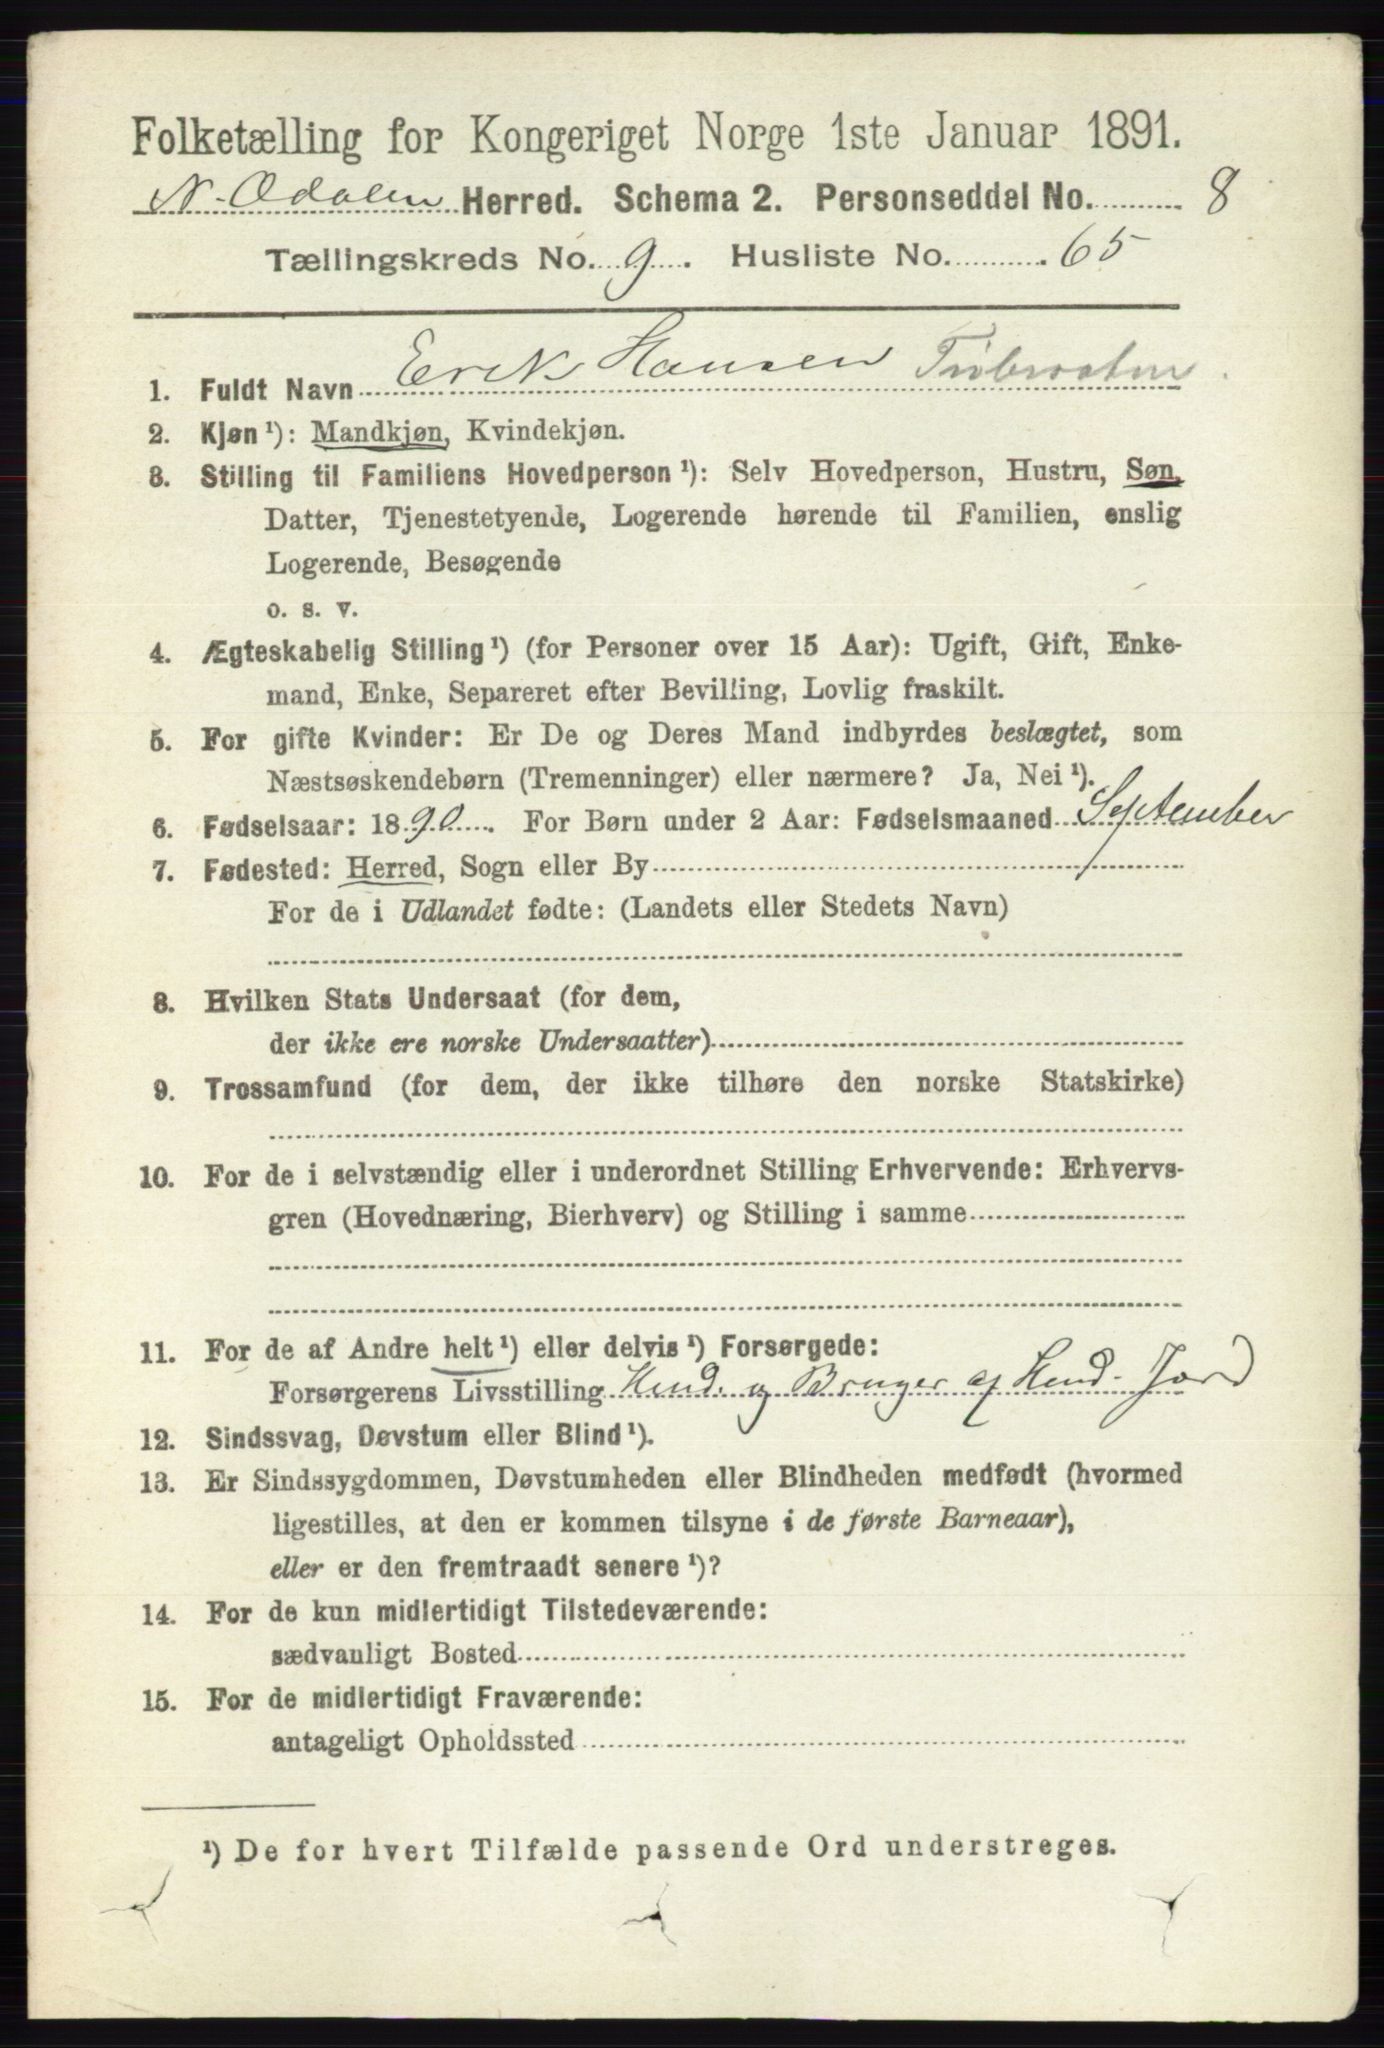 Folketælling for Kongeriget Norge 1ste Januar 1891.
N. Odalen Herred. Schema 2. Personseddel No. 8
Tællingskreds No. 9. Husliste No. 65
1. Fuldt Navn Erik Hansen
2. Kjøn¹): Mandkjøn, Kvindekjøn.
3. Stilling til Familiens Hovedperson¹): Selv Hovedperson, Hustru, Søn,
Datter, Tjenestetyende, Logerende hørende til Familien, enslig
Logerende, Besøgende
o. s. v.
4. Ægteskabelig Stilling¹) (for Personer over 15 Aar): Ugift, Gift, Enke-
mand, Enke, Separeret efter Bevilling, Lovlig fraskilt.
5. For gifte Kvinder: Er De og Deres Mand indbyrdes beslægtet, som
Næstsøskendebørn (Tremenninger) eller nærmere? Ja, Nei¹).
6. Fødselsaar: 1890. For Børn under 2 Aar: Fødselsmaaned September
7. Fødested: Herred, Sogn eller By
For de i Udlandet fødte: (Landets eller Stedets Navn)
8. Hvilken Stats Undersaat (for dem,
der ikke ere norske Undersaatter)
9. Trossamfund (for dem, der ikke tilhøre den norske Statskirke)
10. For de i selvstændig eller i underordnet Stilling Erhvervende: Erhvervs-
gren (Hovednæring, Bierhverv) og Stilling i samme
11. For de af Andre helt¹) eller delvis¹) Forsørgede:
Forsørgerens Livsstilling Husd. og Bruger af Husd. Jord
12. Sindssvag, Døvstum eller Blind¹).
13. Er Sindssygdommen, Døvstumheden eller Blindheden medfødt (hvormed
ligestilles, at den er kommen tilsyne i de første Barneaar),
eller er den fremtraadt senere¹)?
14. For de kun midlertidigt Tilstedeværende:
sædvanligt Bosted
15. For de midlertidigt Fraværende:
antageligt Opholdssted
¹) De for hvert Tilfælde passende Ord understreges.